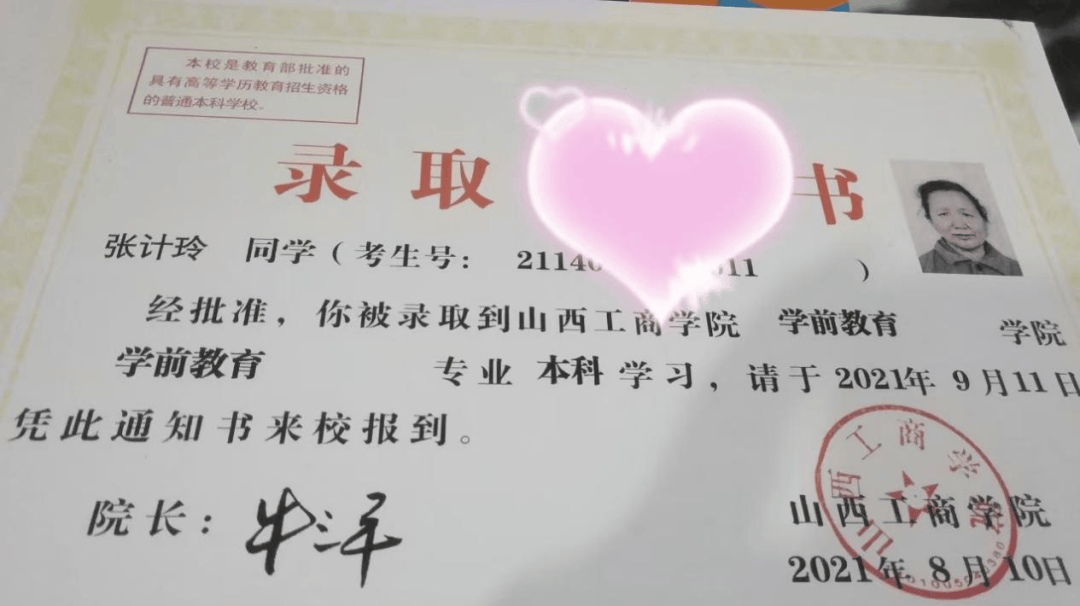 本校是教育部批准的
具有高等学历教育招生资格
的普通本科学校。
录取 书
张计玲 同学(考生号: 2114 011 )
经批准，你被录取到山西工商学院 学前教育 学院
学前教育 专业 本科 学习，请于 2021年 9月11日
凭此通知书来校报到。
院长: 牛三平
山西工商学院
山西工商学院
2021年 8月10日